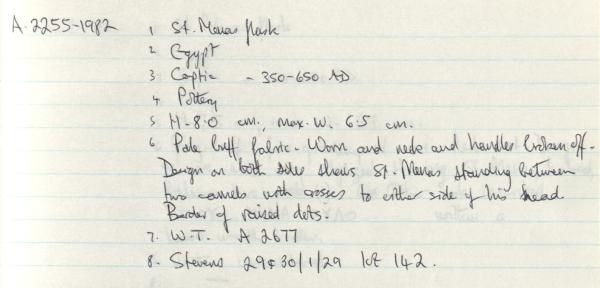 A.2255-1982 1 St. Menas flask
2 Egypt
3 Coptic - 350-650 AD
4 Pottery
5 H-8.0 cm., max. W. 6.5 cm.
6 Pale buff fabric. Worn and neck and handles broken off.
Design on both sides shows St. Menas standing between
two camels with crosses to either side of his head.
Border of raised dots.
7. W.T. A 2677
8. Stevens 29 & 30/1/29 lot 142.